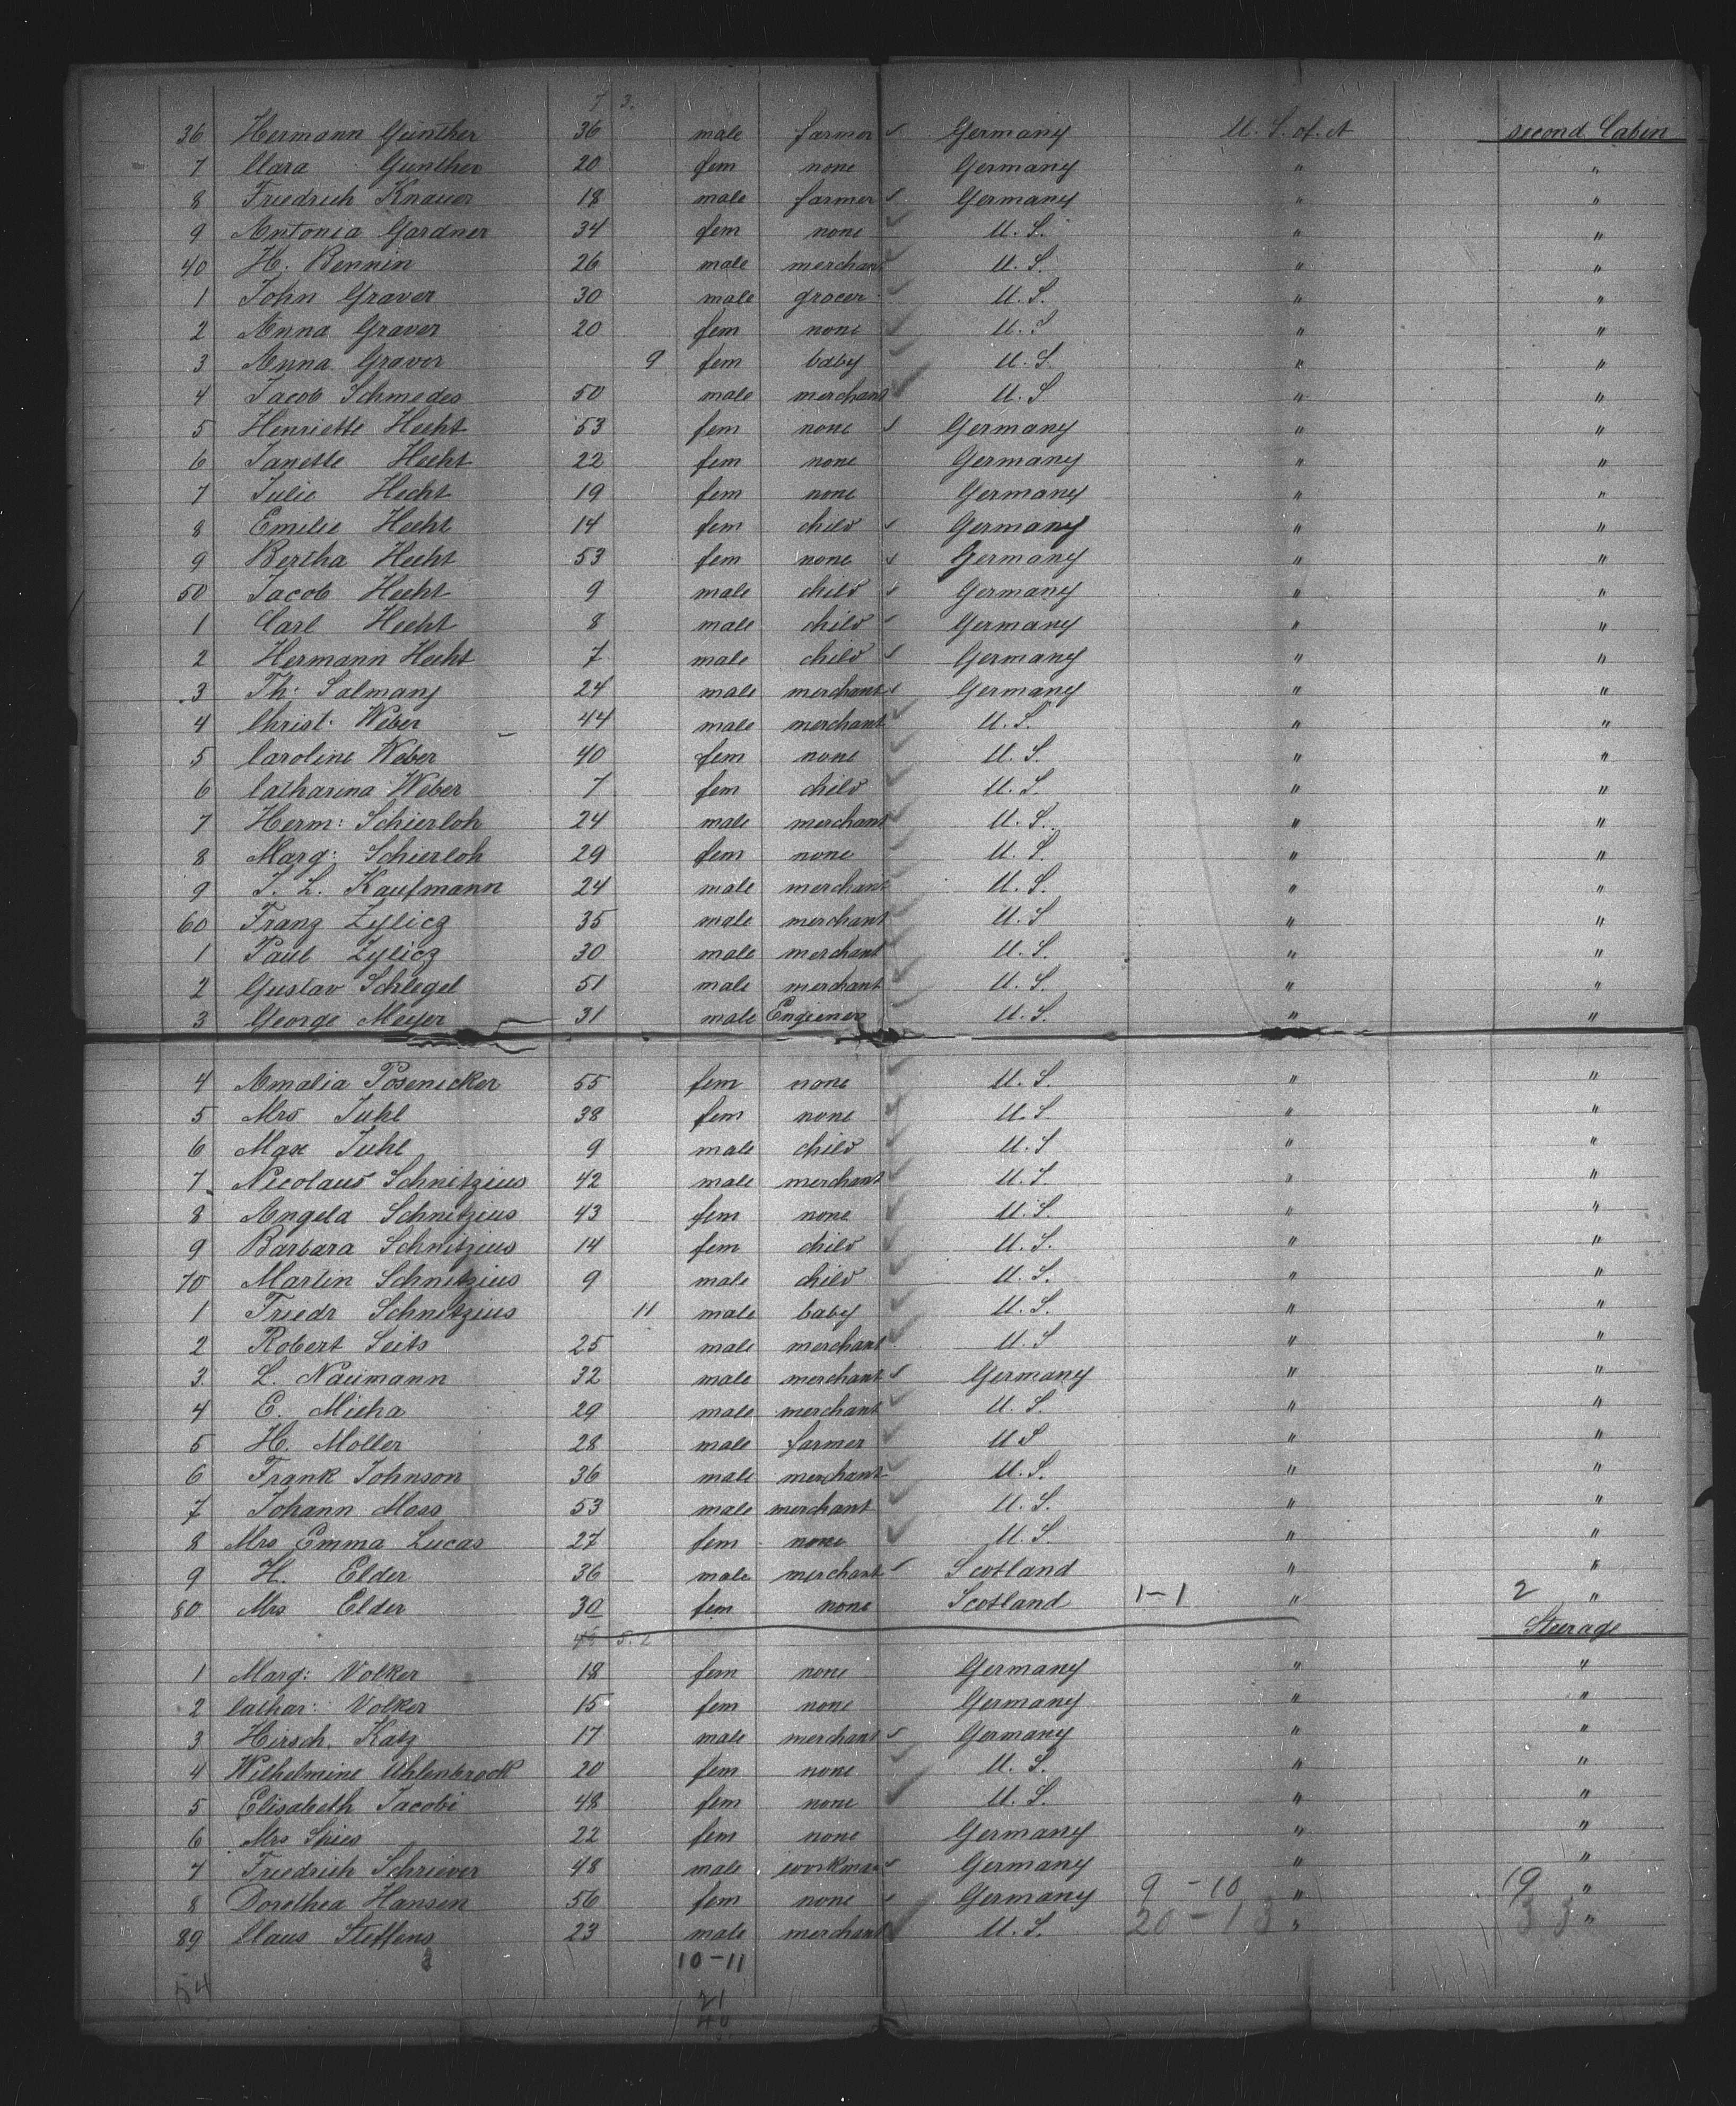 7 3.
36 Hermann Günther 36 male farmer Germany U. S. of. A second Cabin
7 Clara Gunther 20 fem none Germany " "
8 Friedrich Knauer 18 male farmer Germany " "
9 Antonia Gardner 34 fem none U. S. " "
40 H. Bennin 26 male merchant U. S. " "
1 John Graver 30 male grocer U. S. " "
2 Anna Graver 20 fem none U. S " "
3 Anna Graver 9 fem baby U. S. " "
4 Jacob Schmedes 50 male merchant U. S " "
5 Henriette Hecht 53 fem none Germany " "
6 Janette Hecht 22 fem none Germany " "
7 Julie Hecht 19 fem none Germany " "
8 Emilie Hecht 14 fem child Germany " "
9 Bertha Hecht 53 fem none Germany " "
50 Jacob Hecht 9 male child Germany " "
1 Carl Hecht 8 male child Germany " "
2 Hermann Hecht 7 male child Germany " "
3 Th: Salmang 24 male merchant Germany " "
4 Christ. Weber 44 male merchant U. S. " "
5 Caroline Weber 40 fem none U. S. " "
6 Catharina Weber 7 fem child U. S. " "
7 Herm: Schierloh 24 male merchant U. S. " "
8 Marg: Schierloh 29 fem none U. S. " "
9 J. L. Kaufmann 24 male merchant U. S. " "
60 Franz Zylicz 35 male merchant U. S " "
1 Paul Zylicz 30 male merchant U. S. " "
2 Gustav Schlegel 51 male merchant U. S. " "
3 George Meyer 31 male Engineer U. S. " "
4 Amalia Posenecker 55 fem none U. S. " "
5 Mrs Juhl 38 fem none U. S " "
6 Max Juhl 9 male child U. S " "
7 Nicolaus Schnitzius 42 male merchant U. S " "
8 Angela Schnitzius 43 fem none U. S. " "
9 Barbara Schnitzius 14 fem child U. S. " "
70 Martin Schnitzius 9 male child U. S. " "
1 Friedr Schnitzius 11 male baby U. S. " "
2 Robert Seits 25 male merchant U. S " "
3 L. Naumann 32 male merchant Germany " "
4 E. Micha 29 male merchant U. S. " "
5 H. Moller 28 male farmer U S " "
6 Frank Johnson 36 male merchant U. S. " "
7 Johann Moss 53 male merchant U. S. " "
8 Mrs Emma Lucas 27 fem none U. S. " "
9 H. Elder 36 male merchant Scotland " "
80 Mrs Elder 30 fem none Scotland 1-1 " 2 "
Steerage
1 Marg: Volker 18 fem none Germany " "
2 Cathar: Volker 15 fem none Germany " "
3 Hirsch. Katz 17 male merchant Germany " "
4 Wilhelmine Uhlenbrock 20 fem none U. S. " "
5 Elisabeth Jacobi 48 fem none U. S. " "
6 Mrs Spies 22 fem none Germany " "
7 Friedrich Schriever 48 male workman Germany " "
8 Dorethea Hansen 56 fem none Germany 9 - 10 " 19 "
89 Claus Steffens 23 male merchant U. S. 20 - 13 " 33 "
10-11
54
21
40